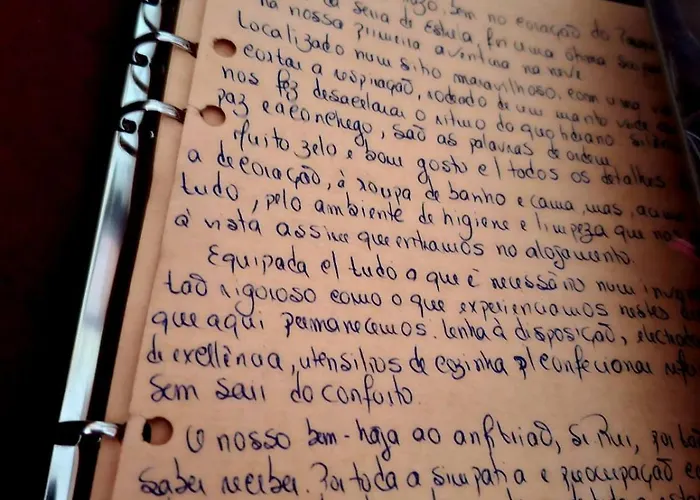 bem no coração do
da serra da Estrela, foi uma ótima surpresa
na nossa primeira aventura na neve
Localizado num sítio maravilhoso, com uma
cortar a respiração, rodeado de um manto verde
nos fez desacelerar o ritmo do quotidiano.
paz e aconchego, são as palavras de ordem.
Muito zelo e bom gosto c/ todos os detalhes
a decoração, à roupa de banho e cama, mas,
tudo, pelo ambiente de higiene e limpeza que nos
à vista assim que entramos no alojamento.
Equipada c/ tudo o que é necessário num
tão rigoroso como o que experienciamos nestes
que aqui permanecemos. Lenha à disposição,
de excelência, utensílios de cozinha p/ confecionar
sem sair do conforto.
O nosso bem-haja ao anfitrião, Sr. Rui, por
saber receber. Por toda a simpatia e preocupação